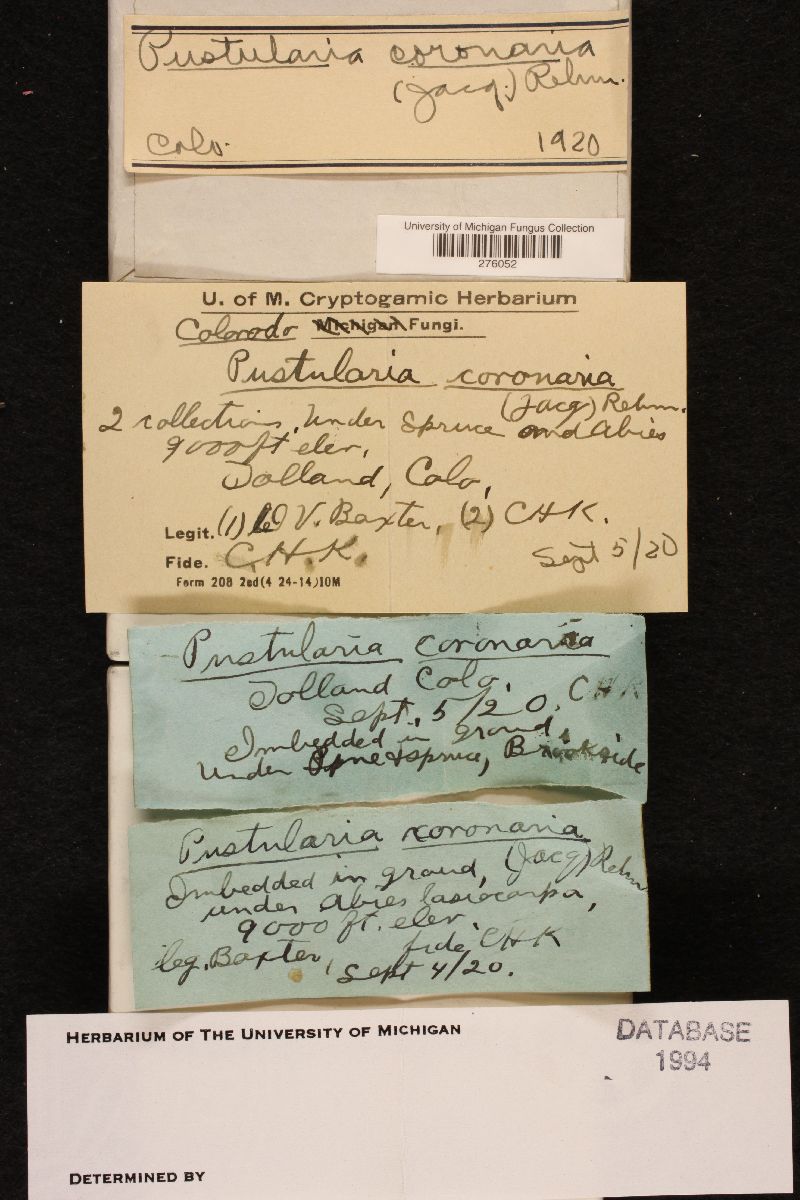 Pustularia coronaria
(Jacq.) Rehm.
Colo. 1920
University of Michigan Fungus Collection
276052
U. of M. Cryptogamic Herbarium
Colorado Michigan Fungi.
Pustularia coronaria
(Jacq) Rehm.
2 collections, under Spruce and Abies
9000 ft elev.
Tolland, Colo.
Legit. (1) V. Baxter, (2) CHK.
Fide. C.H.K. Sept 5/20
Form 208 2nd(4 24-14)10M
Pustularia coronaria
Tolland Colo. CHK
Sept. 5/20.
Imbedded in ground,
under Pine & spruce, Brookside
Pustularia coronaria
Imbedded in ground, (Jacq) Rehm
under Abies lasiocarpa,
9000 ft. elev.
leg. Baxter, fide, CHK
Sept 4/20.
HERBARIUM OF THE UNIVERSITY OF MICHIGAN
DATABASE
1994
DETERMINED BY